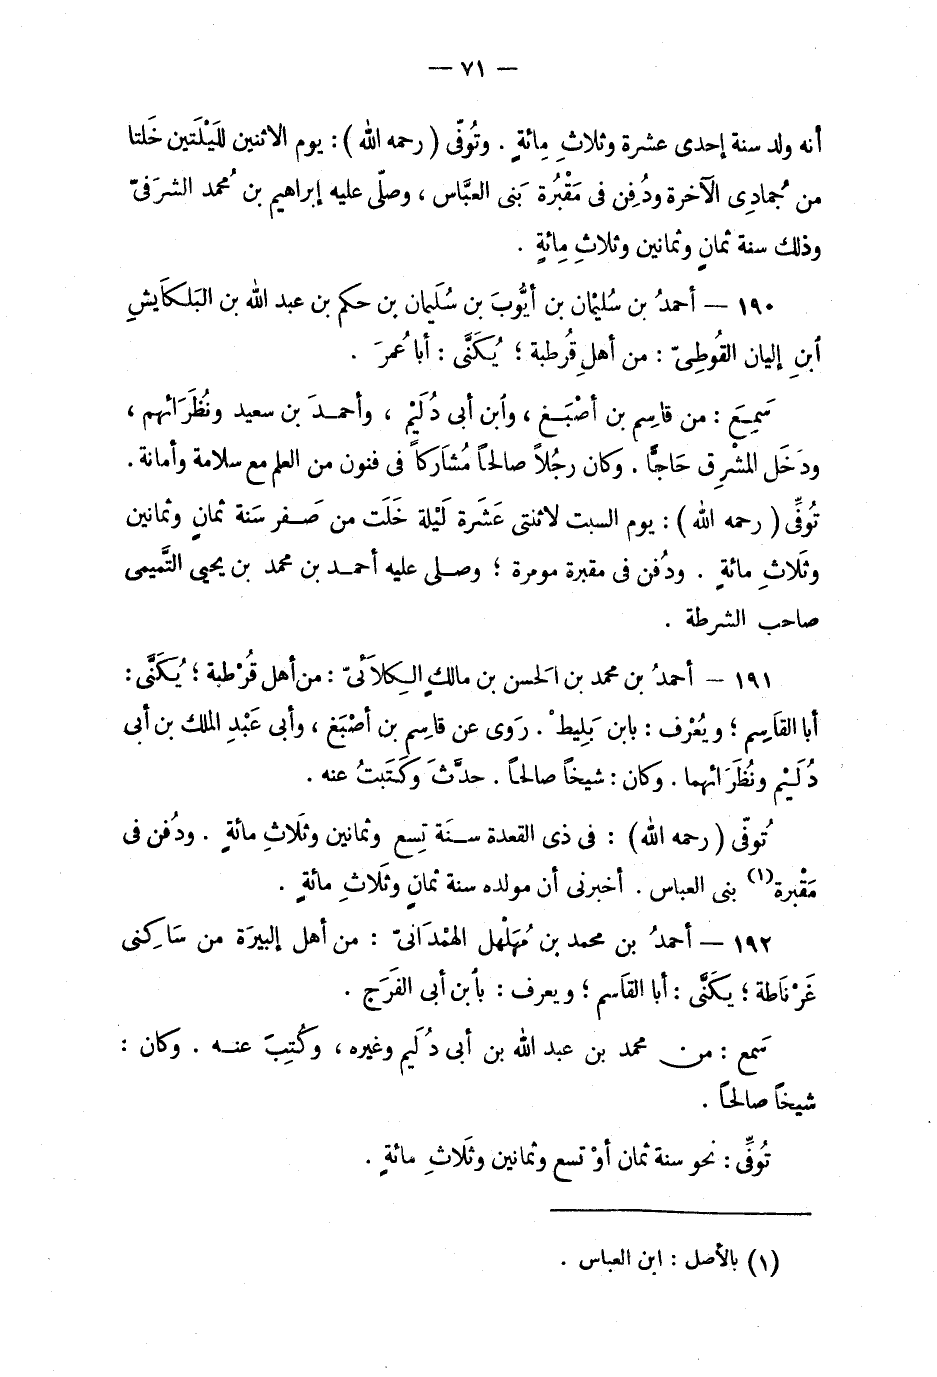 — ٧١ —
أنه ولد سنة إحدى عشرة وثلاثِ مِائةٍ . وتُوفّى ( رحمه الله ) : يوم الاثنين لليْلَتين خَلتا
من جُمادِى الآخرة ودُفِن فى مَقْبُرة بَنى العبَّاس ، وصلّى عليه إبراهيم بن مُحمد الشرَفىّ
وذلك سنة ثمانٍ وثمانين وثلاثِ مِائةٍ .
١٩٠ — أحمدُ بن سُليْمان بن أيُّوبَ بن سُلَيمان بن حكم بن عبد الله بن البَلكَايشِ
أبنِ إليان القُوطِىّ : من أهلِ قُرطبة ؛ يُكَنَّى : أبا عُمرَ .
سَمِعَ : من قاسِم بن أصْبَغ ، وأبن أبى دُلَيْم ، وأحمدَ بن سعيد ونُظَرَائهم ،
ودَخَل المشْرِق حَاجًّا . وكان رجُلاً صالحاً مُشاَركاً فى فنون من العلم مع سلامة وأمانة .
تُوفِّى ( رحمه الله ) : يوم السبت لاثنتى عَشَرة لَيْلة خَلَت من صَفر سَنة ثمانٍ وثمانين
وثَلاثِ مائةٍ . ودُفن فى مقبرة مومرة ؛ وصلى عليه أحمد بن محمد بن يحيى التَّميمى
صاحب الشرطة .
١٩١ — أحمدُ بن محمد بن الحسن بن مالكٍ الكلاَئىّ : من أهل قُرْطبة ؛ يُكَنَّى :
أبا القاَسِم ؛ ويُعْرَف : بابن بَلِيطْ . رَوى عن قاسِم بن أصْبَغ ، وأبى عَبْدِ الملك بن أبى
دُلَيْم ونُظَرَائهما . وكان : شيخاً صالحاً . حدَّثَ وكَتَبتُ عنه .
تُوفّى ( رحمه الله ) : فى ذى القعدة سنَة تِسع وثمانين وثلَاثِ مائةٍ . ودُفن فى
مَقْبرة (١) بنى العباس . أخبرنى أن مولده سنة ثمانٍ وثَلاثِ مائةٍ .
١٩٢ — أحمدُ بن محمد بن مُهَلْهل الهمْدَانىّ : من أهل إلبيرَة من سَاكِنى
غَرْنَاطة ؛ يكَنَّى : أبا القاَسم ؛ ويعرف : بأبن أبى الفَرَج .
سَمع : من محمد بن عبد الله بن أبى دُلَيم وغيره ، وكُتِبَ عنه . وكان :
شيخاً صالحاً .
تُوفِّى : نحو سنة ثمان أوْ تسع وثمانين وثَلاثِ مائةٍ .
(١) بالأصل : ابن العباس .